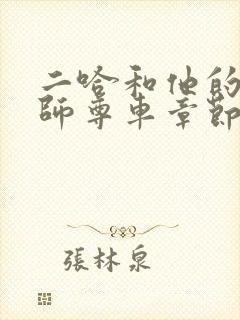 二哈和他的
師尊車章節
張林泉